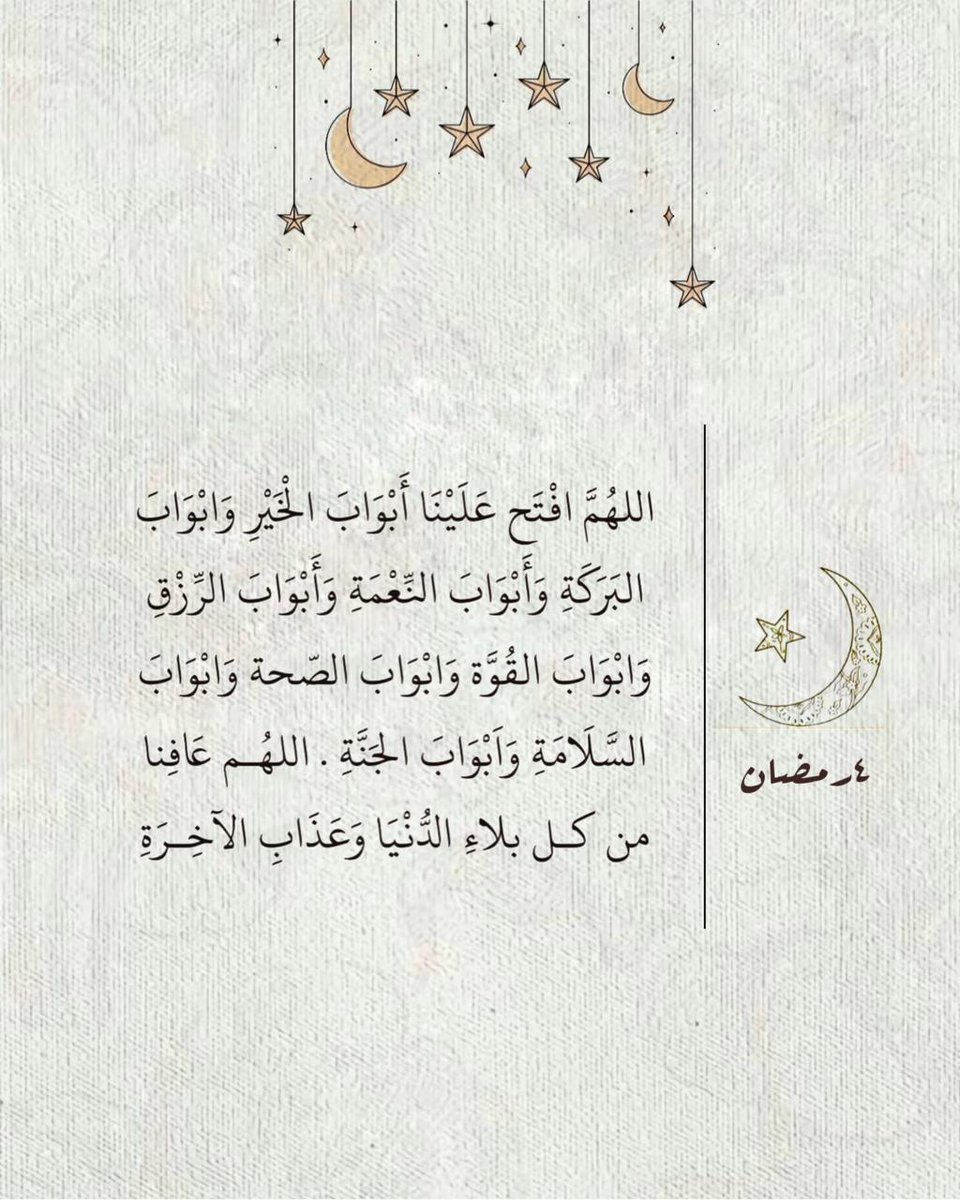 اللهُمَّ افْتَح عَلَيْنَا أَبْوَابَ الْخَيْرِ وَابْوَابَ
البَرَكَةِ وَأَبْوَابَ النِّعْمَةِ وَأَبْوَابَ الرِّزْقِ
وَابْوَابَ القُوَّة وَابْوَابَ الصّحة وَابْوَابَ
السَّلَامَةِ وَاَبْوَابَ الجَنَّةِ . اللهُـم عَافِنا
من كـل بلاءِ الدُّنْيَا وَعَذَابِ الآخِـرَةِ
٤ رمضان